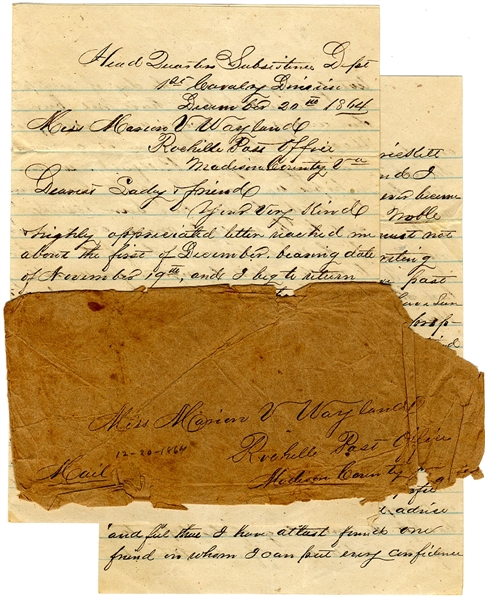 Head Quarters Subsistence Dpt
1st Cavalry Division
December 20th 1864
Miss Marion V. Wayland
Rochelle Post Office
Madison County Va
Dearest Lady & friend
Your very kind
& highly appreciated letter reached me
about the first of December, bearing date
of November 19th, and I beg to return
nd I
ever become
Noble
must not
esting
past
Miss Marion V Wayland
Rochelle Post Office
12-20-1864
Mail
Madison County
advice
and feel that I have at last found one
friend in whom I can put every confidence